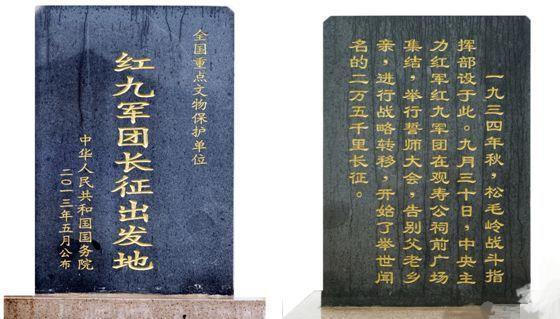 全国重点文物保护单位
红九军团长征出发地
中华人民共和国国务院
二〇一三年五月公布
一九三四年秋，松毛岭战斗指
挥部设于此。九月三十日，中央主
力红军红九军团在观寿公祠前广场
集结，举行誓师大会，告别父老乡
亲，进行战略转移，开始了举世闻
名的二万五千里长征。